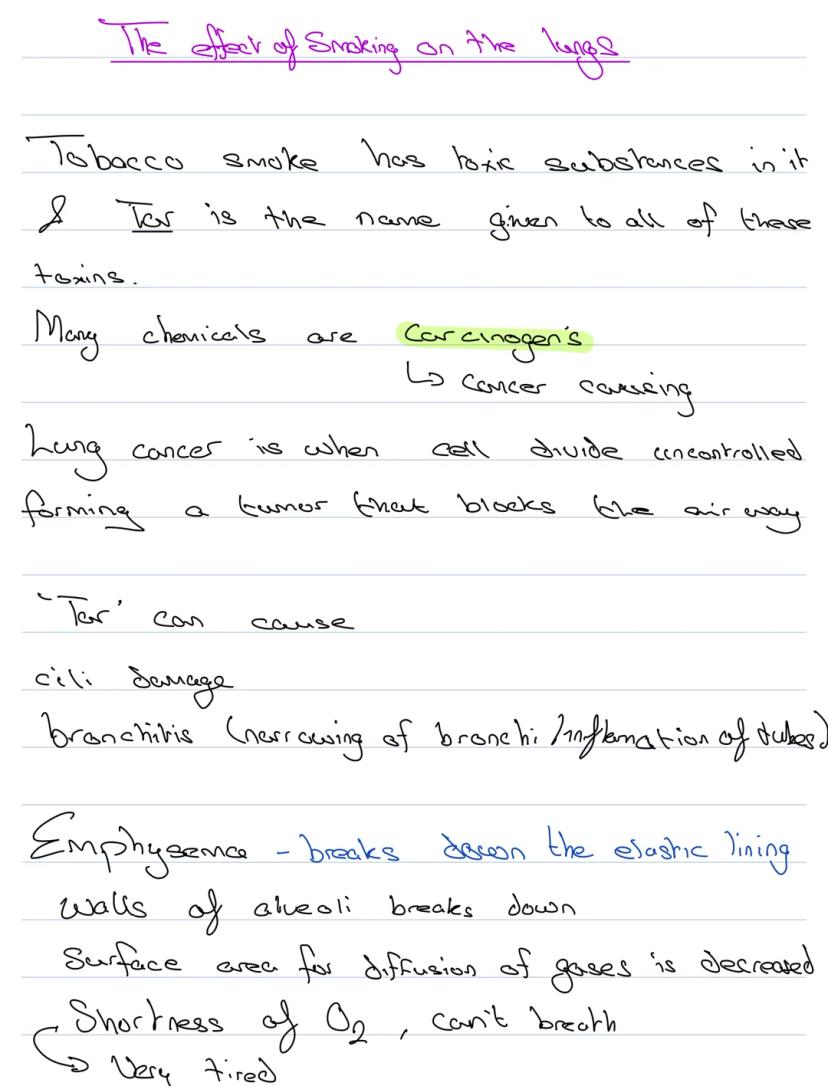 The effect of Smoking on the lungs
Tobacco smoke has toxic substances in it
& Tar is the name given to all of these
toxins.
Many chemicals are Carcinogen's
↳ cancer causing
Lung cancer is when cell divide uncontrolled
forming a tumor that blocks the air way
'Tar' can cause
cili damage
bronchitis (narrowing of bronchi / inflamation of tubes)
Emphysema - breaks down the elastic lining
walls of alveoli breaks down
Surface area for diffusion of gases is decreased
Shortness of O₂, can't breath
→ Very tired